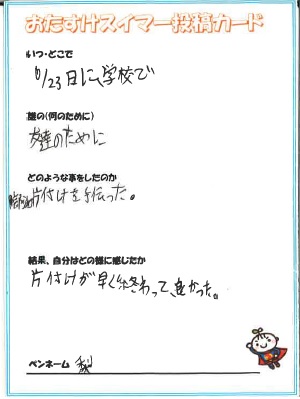 おたすけスイマー投稿カード
いつ・どこで
6/23日に、学校で
誰の(何のために)
友達のために
どのような事をしたのか
片付けを手伝った。
結果、自分はどの様に感じたか
片付けが早く終わって、良かった。
ペンネーム 梨